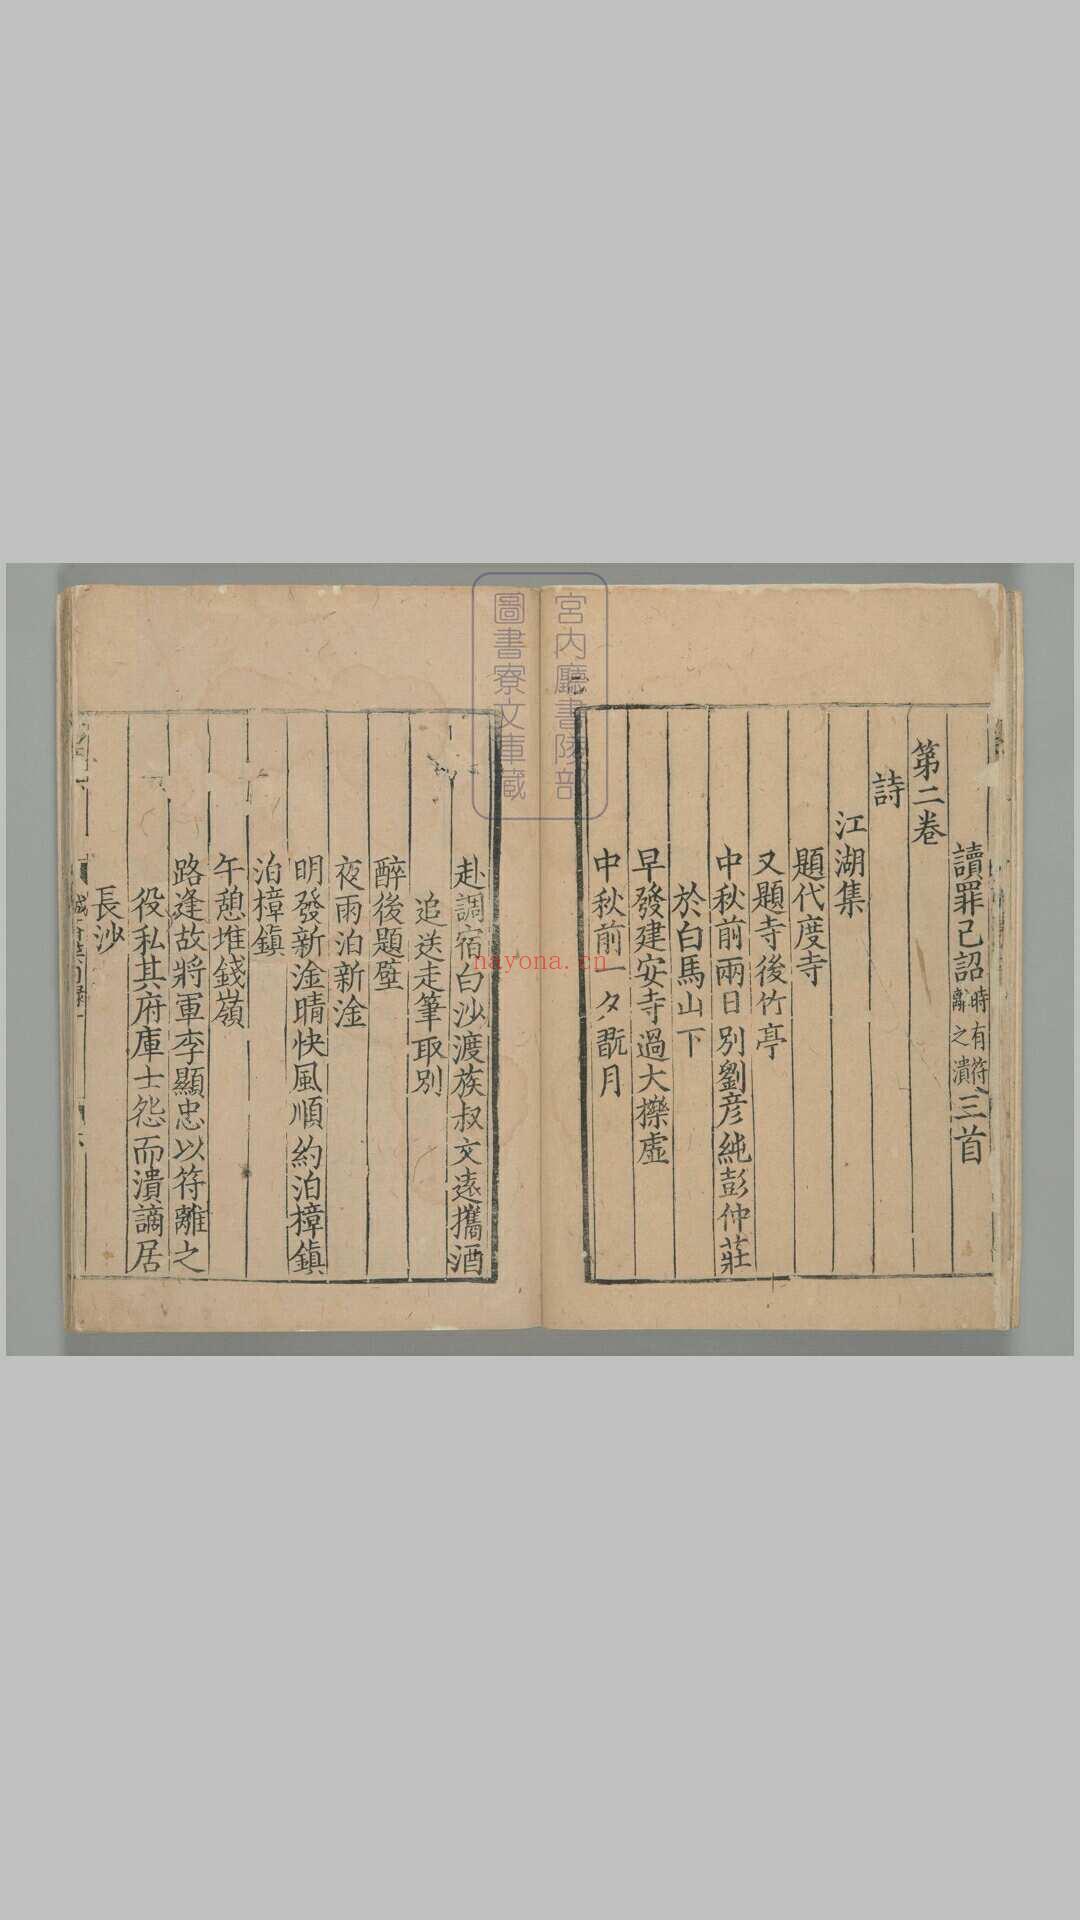 讀罪己詔時有符離之潰三首
第二卷
詩
江湖集
題代度寺
又題寺後竹亭
中秋前兩日別劉彥純彭仲莊
於白馬山下
早發建安寺過大櫟虛
中秋前一夕翫月
赴調宿白沙渡族叔文遠攜酒
追送走筆取別
醉後題壁
夜雨泊新淦
明發新淦晴快風順約泊樟鎮
泊樟鎮
午憩堆錢嶺
路逢故將軍李顯忠以符離之
役私其府庫士怨而潰謫居
長沙
宮內廳書陵部
圖書寮文庫蔵
nayona.cn